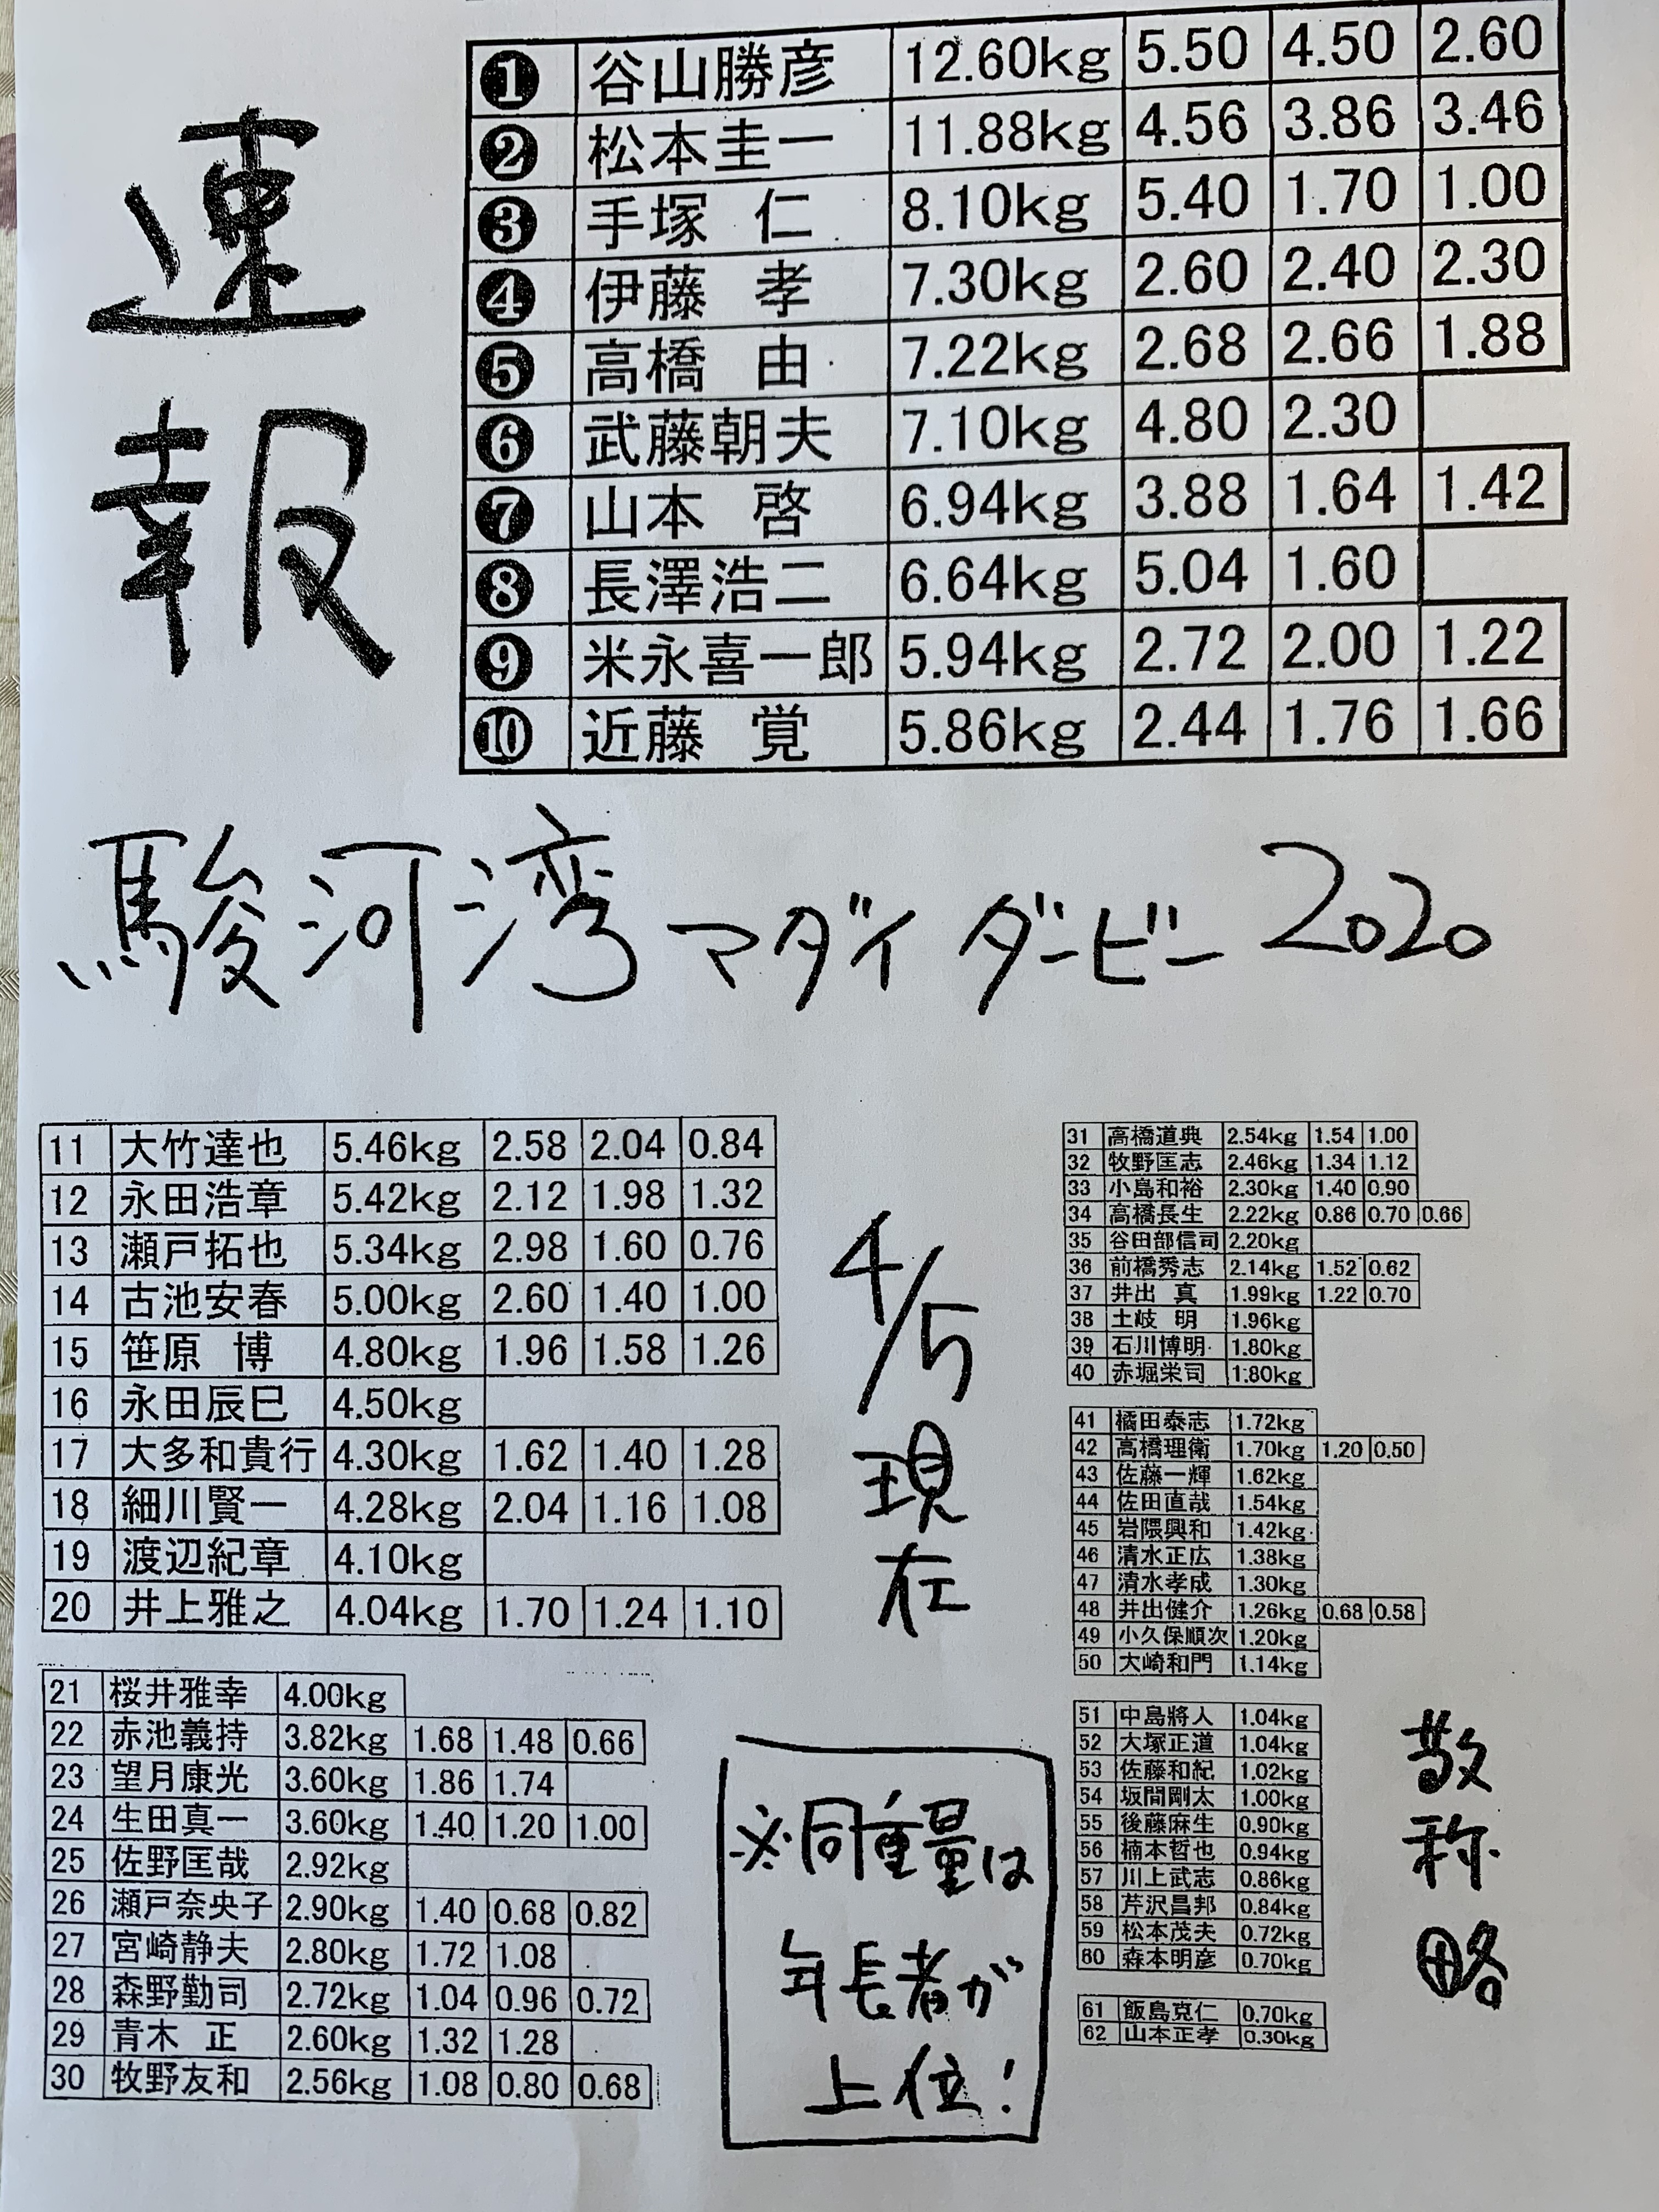 速報
❶ 谷山勝彦 12.60kg 5.50 4.50 2.60
❷ 松本圭一 11.88kg 4.56 3.86 3.46
❸ 手塚 仁 8.10kg 5.40 1.70 1.00
❹ 伊藤 孝 7.30kg 2.60 2.40 2.30
❺ 高橋 由 7.22kg 2.68 2.66 1.88
❻ 武藤朝夫 7.10kg 4.80 2.30
❼ 山本 啓 6.94kg 3.88 1.64 1.42
❽ 長澤浩二 6.64kg 5.04 1.60
❾ 米永喜一郎 5.94kg 2.72 2.00 1.22
❿ 近藤 覚 5.86kg 2.44 1.76 1.66
駿河湾マダイダービー2020
11 大竹達也 5.46kg 2.58 2.04 0.84
12 永田浩章 5.42kg 2.12 1.98 1.32
13 瀬戸拓也 5.34kg 2.98 1.60 0.76
14 古池安春 5.00kg 2.60 1.40 1.00
15 笹原 博 4.80kg 1.96 1.58 1.26
16 永田辰巳 4.50kg
17 大多和貴行 4.30kg 1.62 1.40 1.28
18 細川賢一 4.28kg 2.04 1.16 1.08
19 渡辺紀章 4.10kg
20 井上雅之 4.04kg 1.70 1.24 1.10
21 桜井雅幸 4.00kg
22 赤池義持 3.82kg 1.68 1.48 0.66
23 望月康光 3.60kg 1.86 1.74
24 生田真一 3.60kg 1.40 1.20 1.00
25 佐野匡哉 2.92kg
26 瀬戸奈央子 2.90kg 1.40 0.68 0.82
27 宮崎静夫 2.80kg 1.72 1.08
28 森野勤司 2.72kg 1.04 0.96 0.72
29 青木 正 2.60kg 1.32 1.28
30 牧野友和 2.56kg 1.08 0.80 0.68
4/5
現在
※同重量は
年長者が
上位!
31 高橋道典 2.54kg 1.54 1.00
32 牧野匡志 2.46kg 1.34 1.12
33 小島和裕 2.30kg 1.40 0.90
34 高橋長生 2.22kg 0.86 0.70 0.66
35 谷田部信司 2.20kg
36 前橋秀志 2.14kg 1.52 0.62
37 井出 真 1.99kg 1.22 0.70
38 土岐 明 1.96kg
39 石川博明 1.80kg
40 赤堀栄司 1.80kg
41 橘田泰志 1.72kg
42 高橋理衛 1.70kg 1.20 0.50
43 佐藤一輝 1.62kg
44 佐田直哉 1.54kg
45 岩隈興和 1.42kg
46 清水正広 1.38kg
47 清水孝成 1.30kg
48 井出健介 1.26kg 0.68 0.58
49 小久保順次 1.20kg
50 大崎和門 1.14kg
51 中島將人 1.04kg
52 大塚正道 1.04kg
53 佐藤和紀 1.02kg
54 坂間剛太 1.00kg
55 後藤麻生 0.90kg
56 楠本哲也 0.94kg
57 川上武志 0.86kg
58 芹沢昌邦 0.84kg
59 松本茂夫 0.72kg
60 森本明彦 0.70kg
61 飯島克仁 0.70kg
62 山本正孝 0.30kg
敬称略